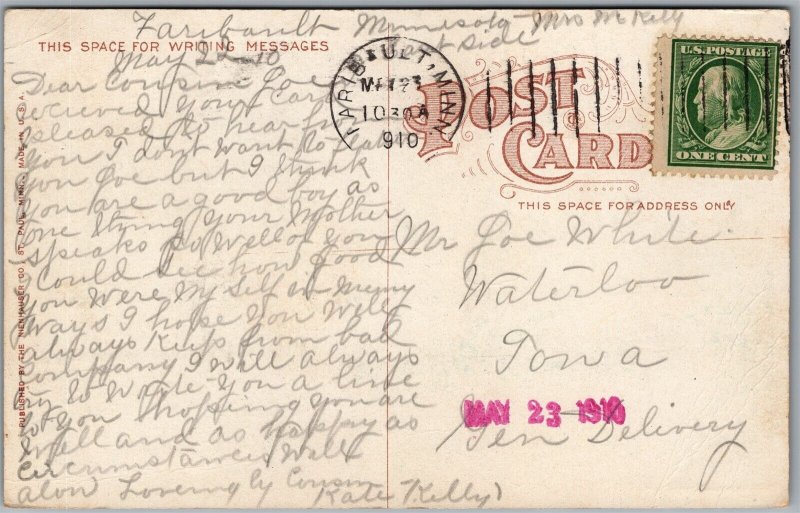 Faribault Minnesota Mrs McKelly
East Side
THIS SPACE FOR WRITING MESSAGES
May 22 - 10
Dear Cousin Joe
recieved your Card
pleased to hear from
you I dont want to
you Joe but I think
you are a good boy as
one thing your Mother
speaks so well of you
I could see how good
you were my self in meny
ways I hope you will
always keep from bad
Company I will always
try to write you a line
or you hopping you are
well and as happy as
Circumstances will
alow Loveing by Cousin
Kate Kelly
PUBLISHED BY THE NIENHAUSER CO., ST. PAUL, MINN. MADE IN U.S.A.
FARIBAULT, MINN.
MAY 23
1030A
1910
U.S. POSTAGE
ONE CENT
POST
CARD
THIS SPACE FOR ADDRESS ONLY
Mr Joe White.
Waterloo
Iowa
MAY 23 1910
Gen Delivery